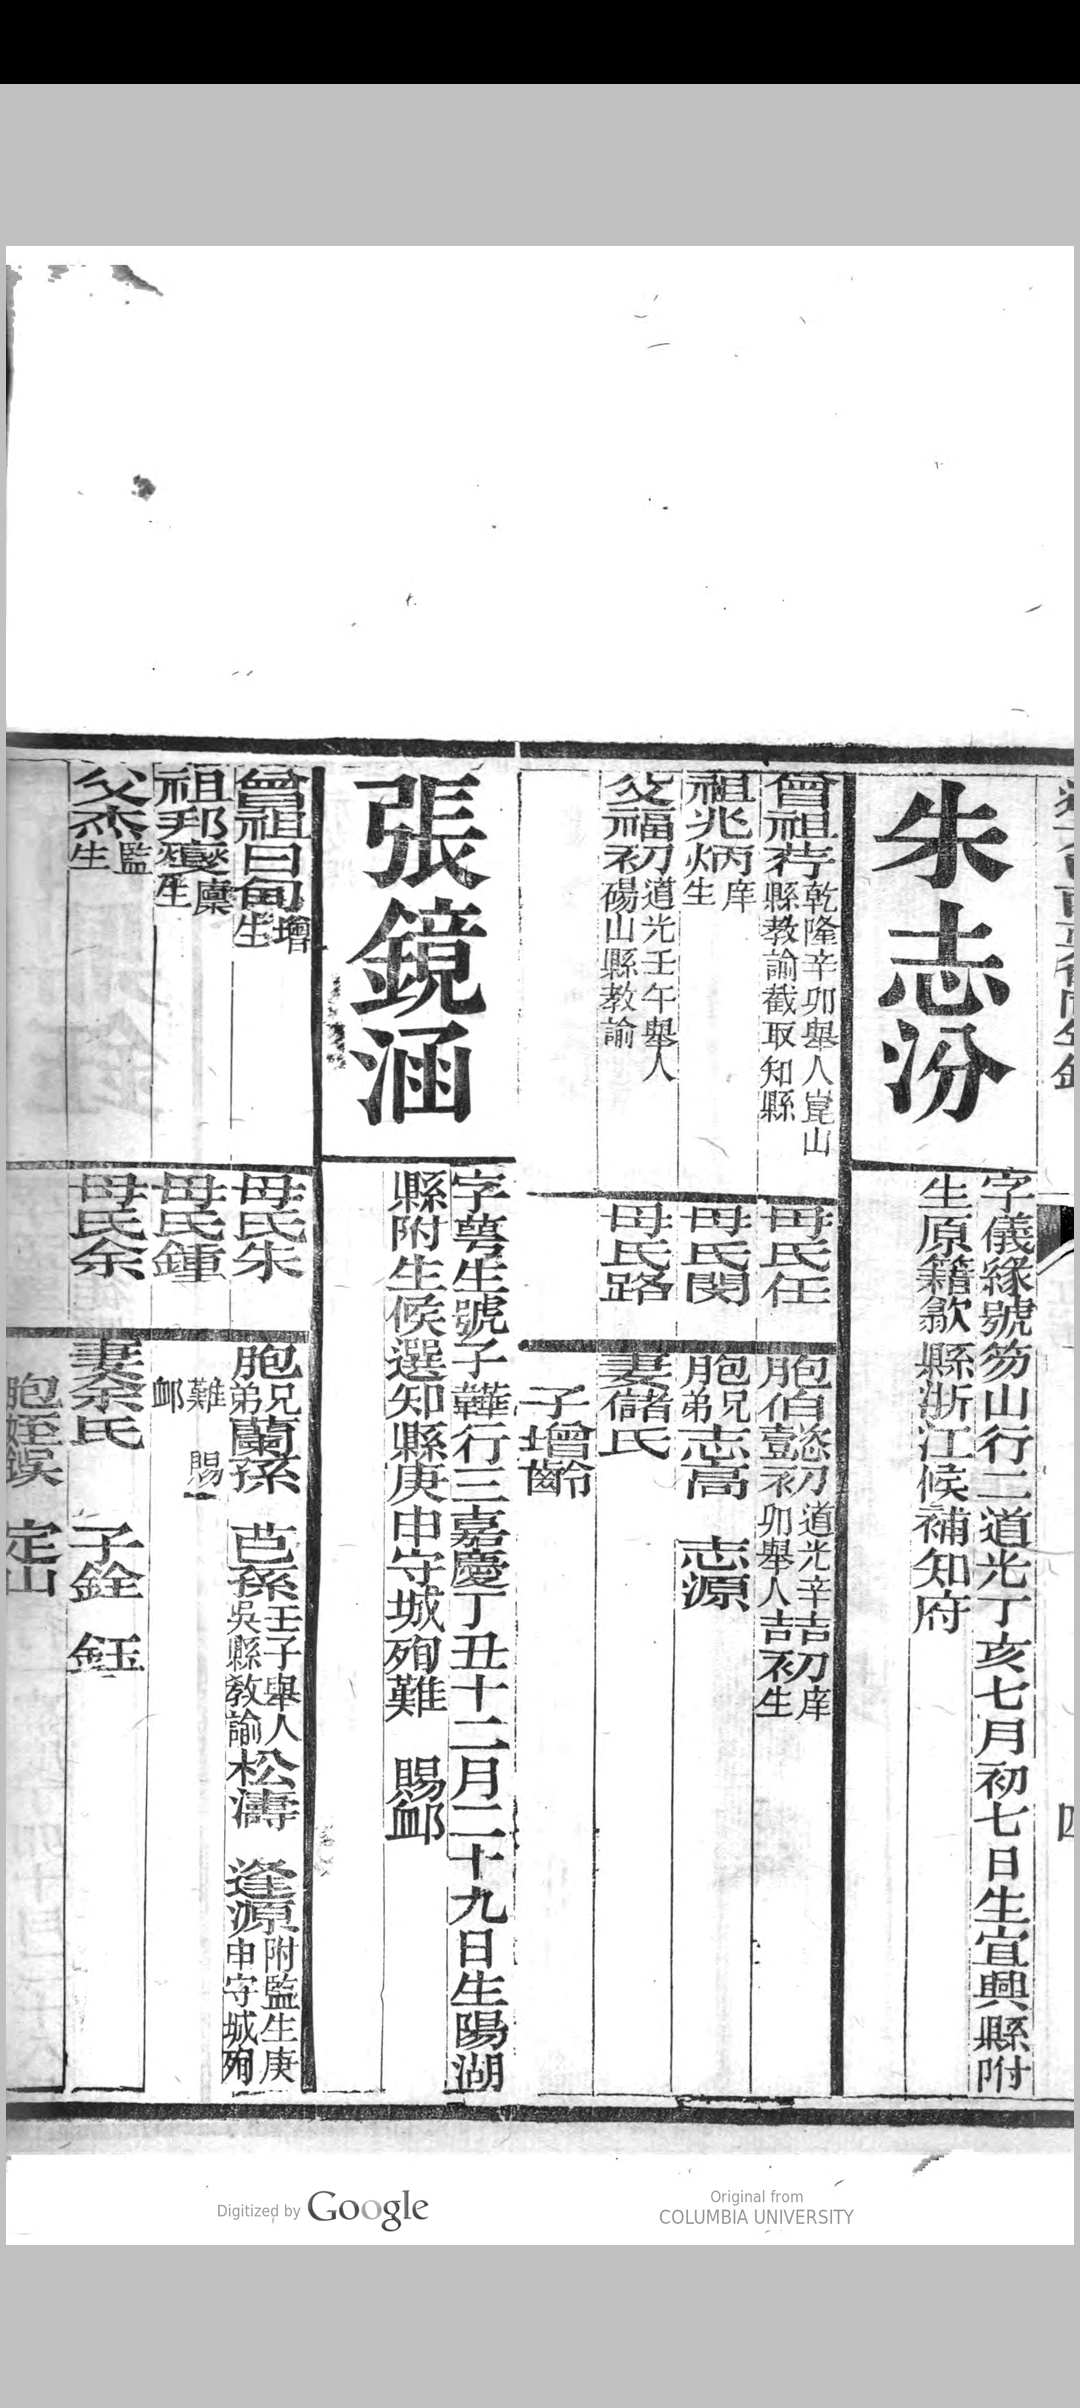 朱志汾
字儀緣號笏山行二道光丁亥七月初七日生宜興縣附
生原籍歙縣浙江候補知府
曾祖荇乾隆辛卯舉人崑山
縣教諭截取知縣
母氏任
胞伯懿初道光辛
卯舉人喆初庠
生
祖兆炳庠
生
母氏閔
胞兄
弟志高 志源
父福初道光壬午舉人
碭山縣教諭
母氏路
妻儲氏
子增齡
張鏡涵
字萼生號子韡行三嘉慶丁丑十二月二十九日生陽湖
縣附生候選知縣庚申守城殉難 賜卹
曾祖曰甸增
生
母氏朱
胞兄
弟蘭孫 芭孫壬子舉人
吳縣教諭松濤 逢源附監生庚
申守城殉
難 賜
卹
祖邦燮廩
生
母氏鍾
父杰監
生
母氏余
妻余氏 子銓 鈺
胞姪 定山
Digitized by Google
Original from
COLUMBIA UNIVERSITY